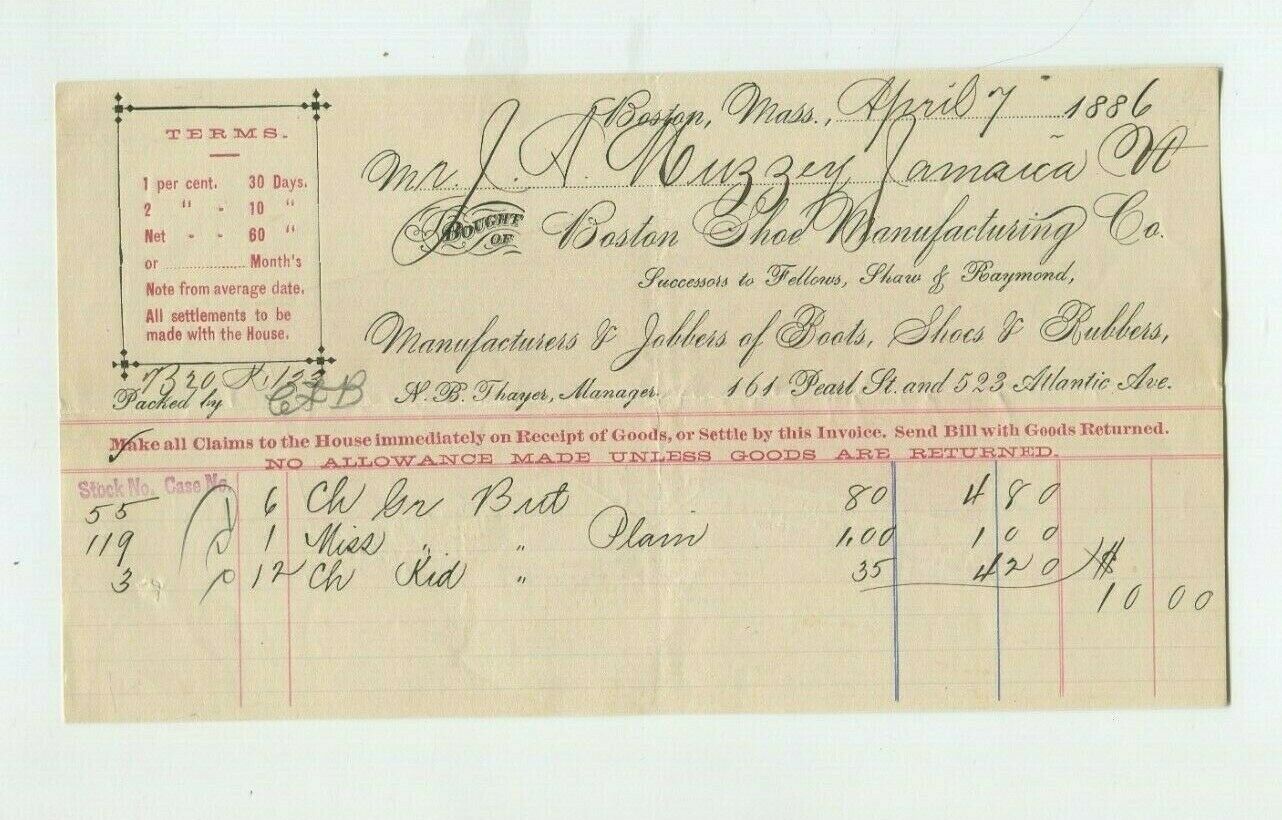 Boston, Mass., April 7 1886
Mr. J. A. Muzzey Jamaica Vt
BOUGHT OF Boston Shoe Manufacturing Co.
Successors to Fellows, Shaw & Raymond,
Manufacturers & Jobbers of Boots, Shoes & Rubbers,
N. B. Thayer, Manager. 161 Pearl St. and 523 Atlantic Ave.
TERMS.
1 per cent. 30 Days.
2 " - 10 "
Net - - 60 "
or ............ Month's
Note from average date.
All settlements to be
made with the House.
Packed by
Make all Claims to the House immediately on Receipt of Goods, or Settle by this Invoice. Send Bill with Goods Returned.
NO ALLOWANCE MADE UNLESS GOODS ARE RETURNED.
Stock No. Case No.
55 6 Ch Gr But 80 4 80
119 1 Miss " " Plain 1.00 1 00
3 12 Ch Kid " 35 4 20 $
10 00